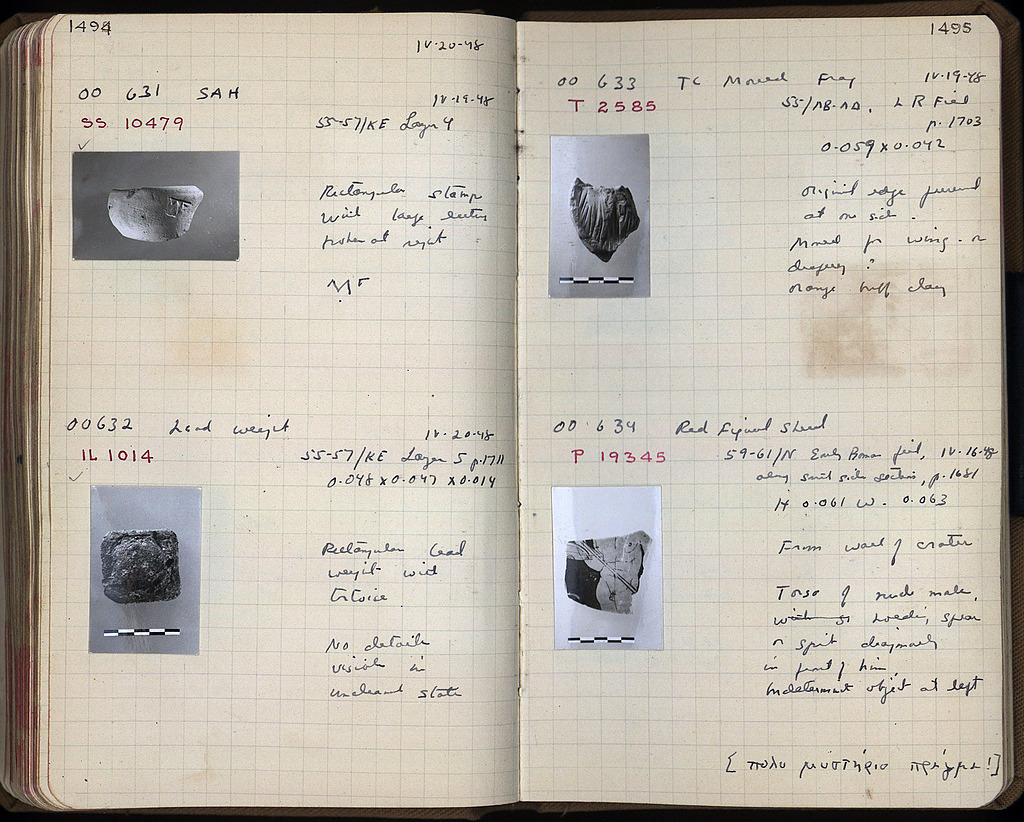 1494
IV-20-48
OO 631 SAH
IV-19-48
SS 10479
55-57/KE Layer 4
Rectangular stamp
with large letters
broken at right
OO 632 Lead weight
IV-20-48
IL 1014
55-57/KE Layer 5 p.1711
0.048 x 0.047 x 0.014
Rectangular lead
weight with
tortoise
No details
visible in
uncleaned state
1495
OO 633 TC Mould Frag
IV-19-48
T 2585
55/AB-AA, L R Fill
p. 1703
0.059 x 0.042
Original edge preserved
at one side.
Mould for wing - or
drapery?
Orange buff clay
OO 634 Red Figured Sherd
P 19345
59-61/N Early Roman fill, IV-16-48
along south side section, p.1681
H 0.061 W. 0.063
From wall of crater
Torso of nude male,
holding spear
or spit diagonally
in front of him
Indeterminate object at left
[πολυ μυστήριο πράγμα!]